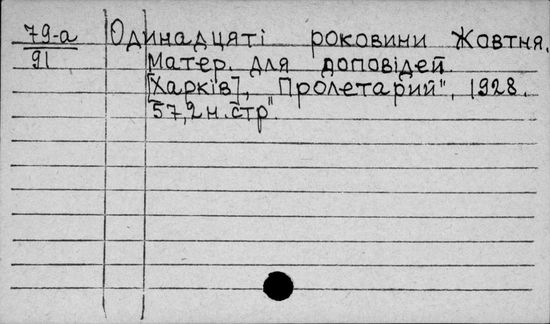 79-а Одинадцяті роковини Жовтня.
91 Матер. для доповідей.
[Харків], "Пролетарий", 1928.
57,2 н. стр.